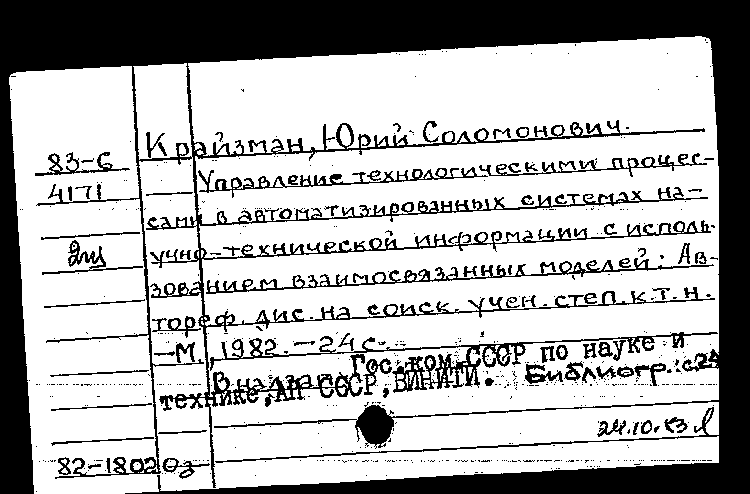 Крайзман, Юрий Соломонович.
83-6
4171
Управление технологическими процес-
сами в автоматизированных системах на-
учно-технической информации с исполь-
зованием взаимосвязанных моделей: Ав-
тореф. дис. на соиск. учен. степ. к.т.н.
-М., 1982. - 24 с.
В надзаг.: Гос.ком.СССР по науке и
технике, АН СССР, ВИНИТИ. Библиогр.: с24
24.10.83
82-18020з